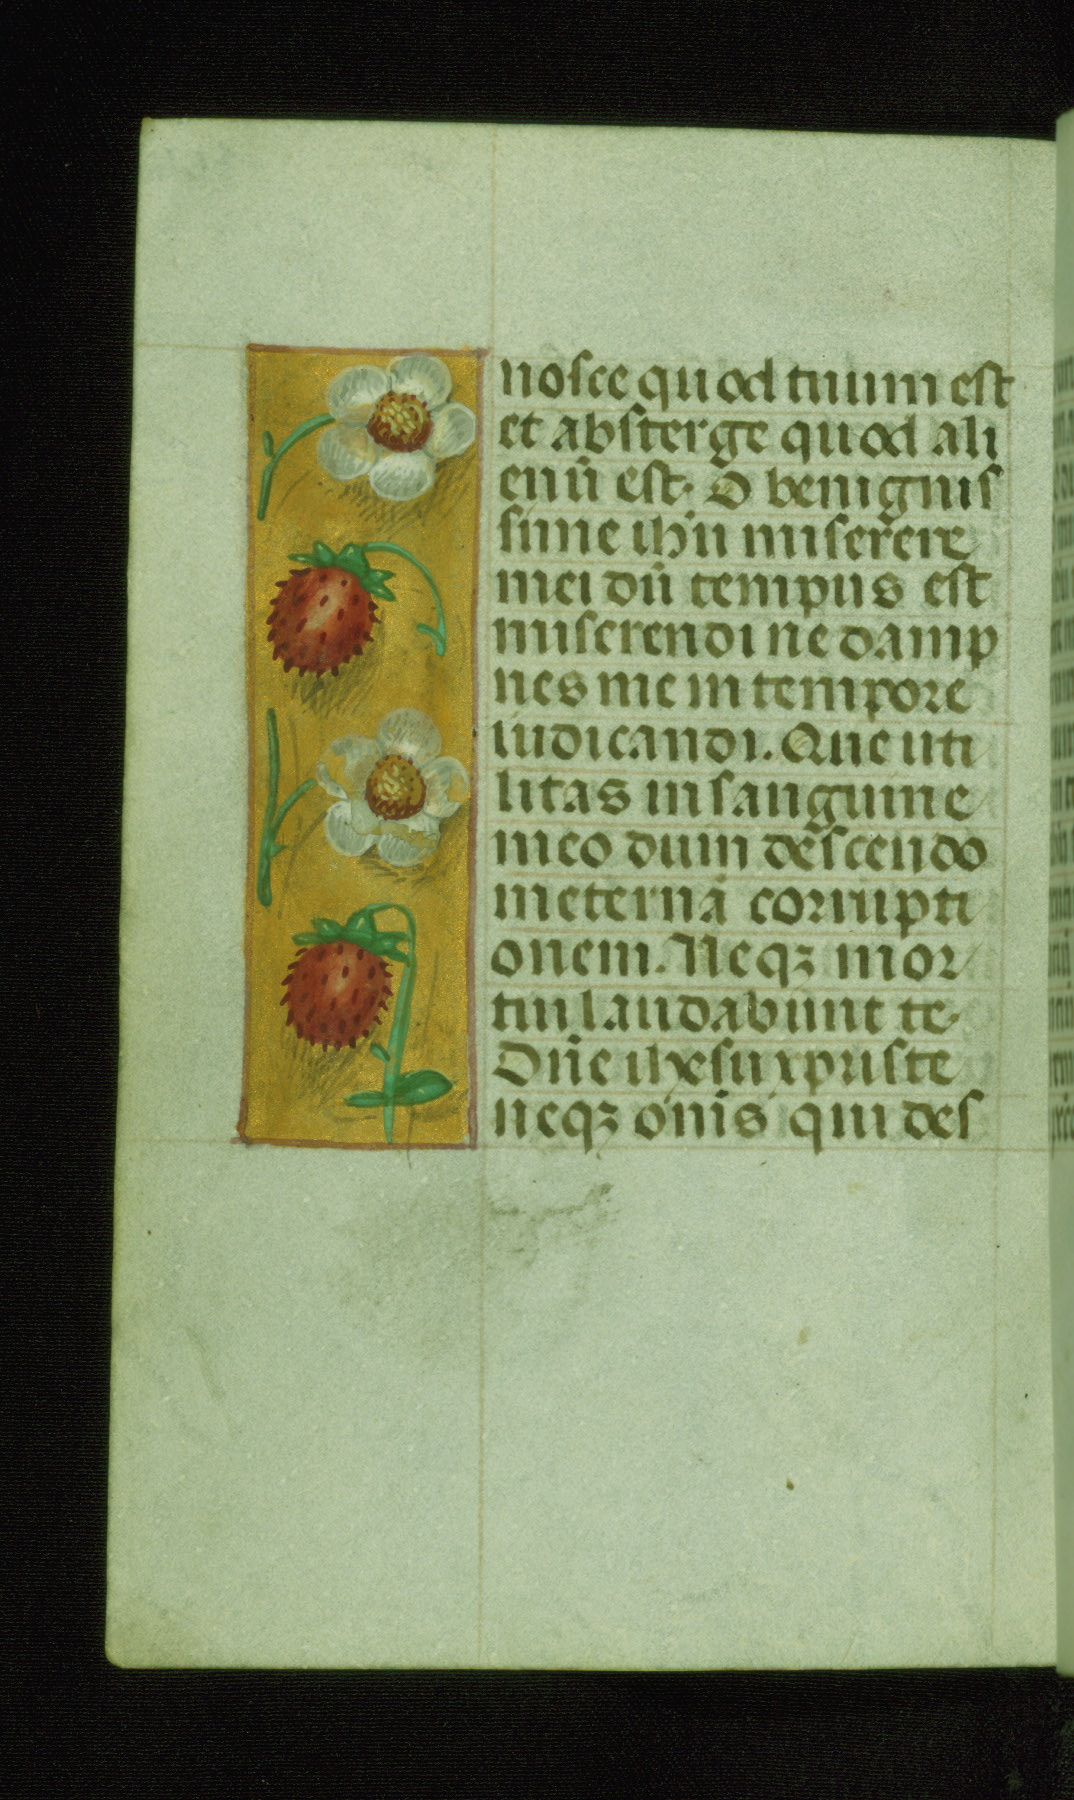 nosce quod tuum est
et absterge quod ali
enū est. O benignis
sime ihū miserere
mei dū tempus est
miserendi ne damp
nes me in tempore
iudicandi. Que uti
litas in sanguine
meo dum descendo
in eternā corrupti
onem. Neqꝫ mor
tui laudabunt te.
Dñe ihesu xpriste
neqꝫ om̄is qui des